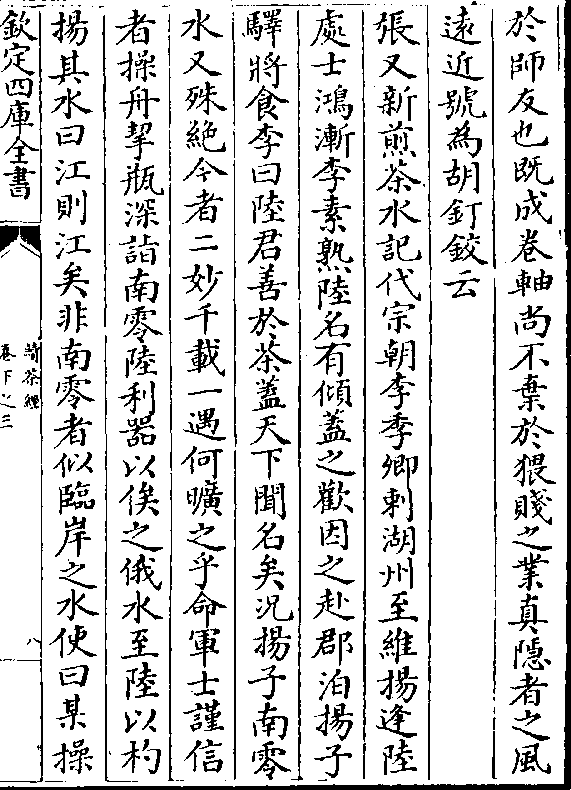 於師友也既成卷軸尚不棄於猥賤之業真隠者之風
逺近號為胡釘鉸云
張又新煎茶水記代宗朝李季卿刺湖州至維揚逢陸
處士鴻漸李素熟陸名有傾蓋之歡因之赴郡泊揚子
驛將食李曰陸君善於茶蓋天下聞名矣况揚子南零
水又殊絶今者二妙千載一遇何曠之乎命軍士謹信
者操舟挈瓶深詣南零陸利器以俟之俄水至陸以杓
揚其水曰江則江矣非南零者似臨岸之水使曰某操
欽定四庫全書
續茶經
卷下之三
八